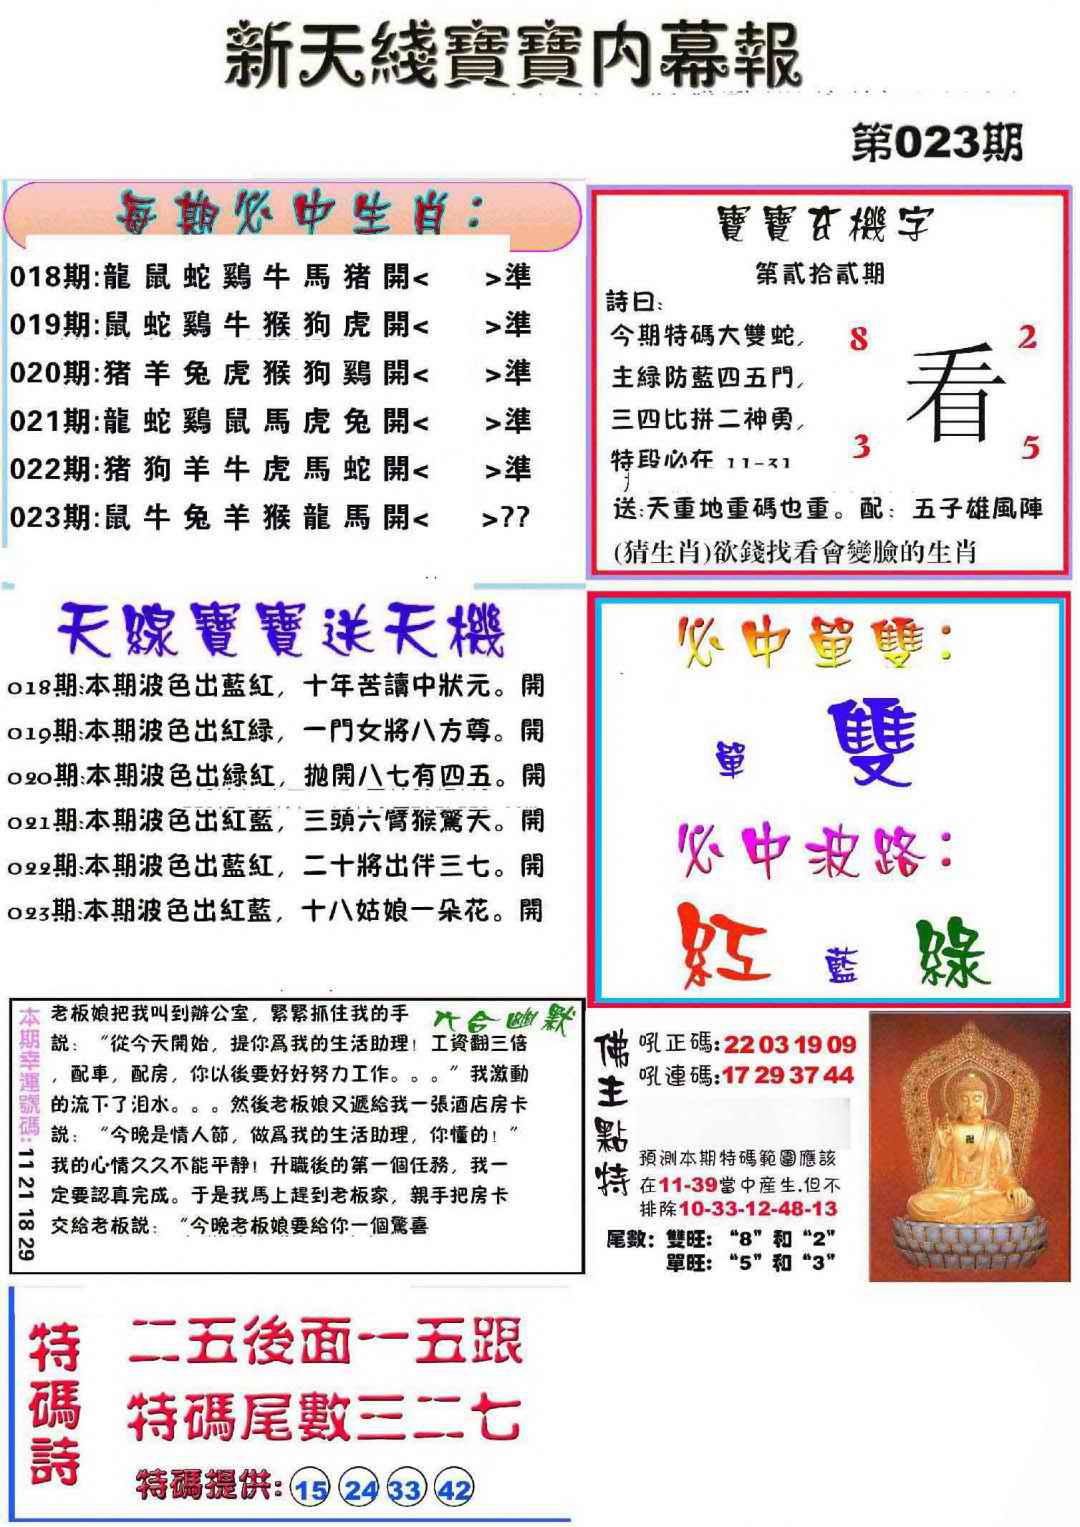 新天綫寶寶内幕報
第023期
每期必中生肖：
018期:龍鼠蛇鷄牛馬猪開< >準
019期:鼠蛇鷄牛猴狗虎開< >準
020期:猪羊兔虎猴狗鷄開< >準
021期:龍蛇鷄鼠馬虎兔開< >準
022期:猪狗羊牛虎馬蛇開< >準
023期:鼠牛兔羊猴龍馬開< >??
寶寶玄機字
第貳拾貳期
詩曰:
今期特碼大雙蛇,
主緑防藍四五門,
三四比拼二神勇,
特段必在 11-31
8 2
看
3 5
送:天重地重碼也重。配：五子雄風陣
(猜生肖)欲錢找看會變臉的生肖
天線寶寶送天機
018期:本期波色出藍紅，十年苦讀中狀元。開
019期:本期波色出紅緑，一門女將八方尊。開
020期:本期波色出緑紅，抛開八七有四五。開
021期:本期波色出紅藍，三頭六臂猴驚天。開
022期:本期波色出藍紅，二十將出伴三七。開
023期:本期波色出紅藍，十八姑娘一朵花。開
必中單雙：
單 雙
必中波路：
紅 藍 綠
本期幸運號碼:11 21 18 29
六合幽默
老板娘把我叫到辦公室，緊緊抓住我的手
説：“從今天開始，提你爲我的生活助理！工資翻三倍
，配車，配房，你以後要好好努力工作。。。”我激動
的流下了泪水。。。然後老板娘又遞給我一張酒店房卡
説：“今晚是情人節，做爲我的生活助理，你懂的！”
我的心情久久不能平静！升職後的第一個任務，我一
定要認真完成。于是我馬上趕到老板家，親手把房卡
交給老板説：“今晚老板娘要給你一個驚喜
佛主點特
吼正碼:22 03 19 09
吼連碼:17 29 37 44
預測本期特碼範圍應該
在11-39當中産生.但不
排除10-33-12-48-13
尾數：雙旺：“8”和“2”
單旺：“5”和“3”
特碼詩
二五後面一五跟
特碼尾數三二七
特碼提供: 15 24 33 42